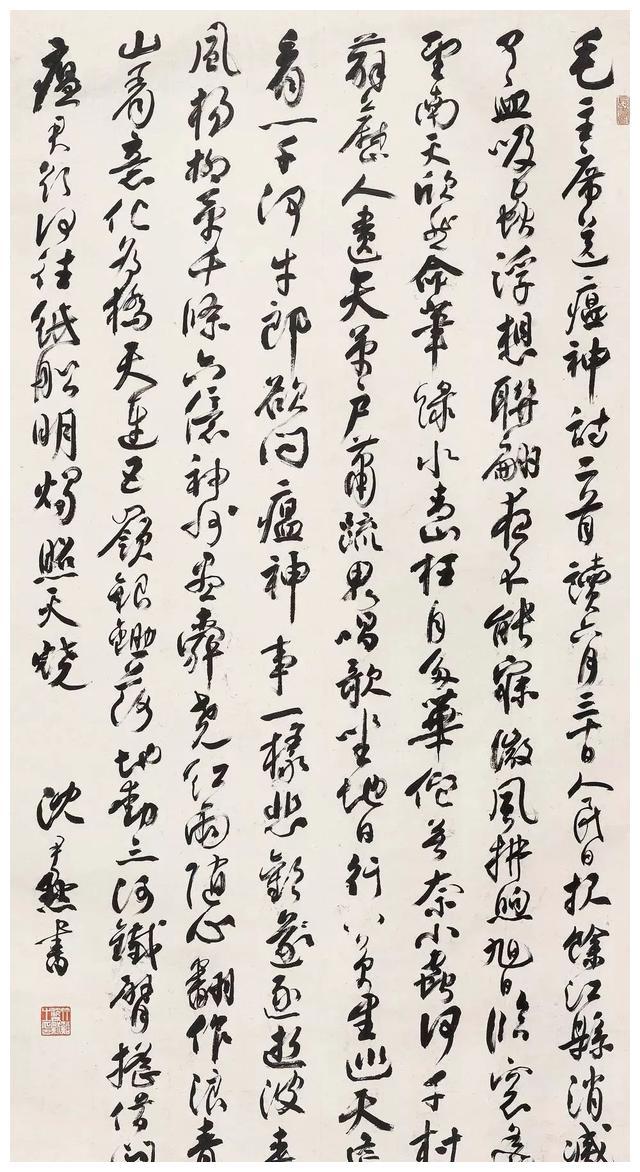 毛主席送瘟神詩二首讀六月三十日人民日报餘江縣消滅
了血吸蟲浮想聯翩夜不能寐微風拂煦旭日臨窗遥
望南天欣然命筆緑水青山枉自多華佗無奈小蟲何千村
薜藶人遺矢萬户蕭疏鬼唱歌坐地日行八萬里巡天遥
看一千河牛郎欲問瘟神事一樣悲歡逐逝波春
風楊柳萬千條六億神州盡舜堯紅雨隨心翻作浪青
山着意化為橋天連五嶺銀鋤落地動三河鐵臂搖借問
瘟君欲何往紙船明燭照天燒
沈尹默書